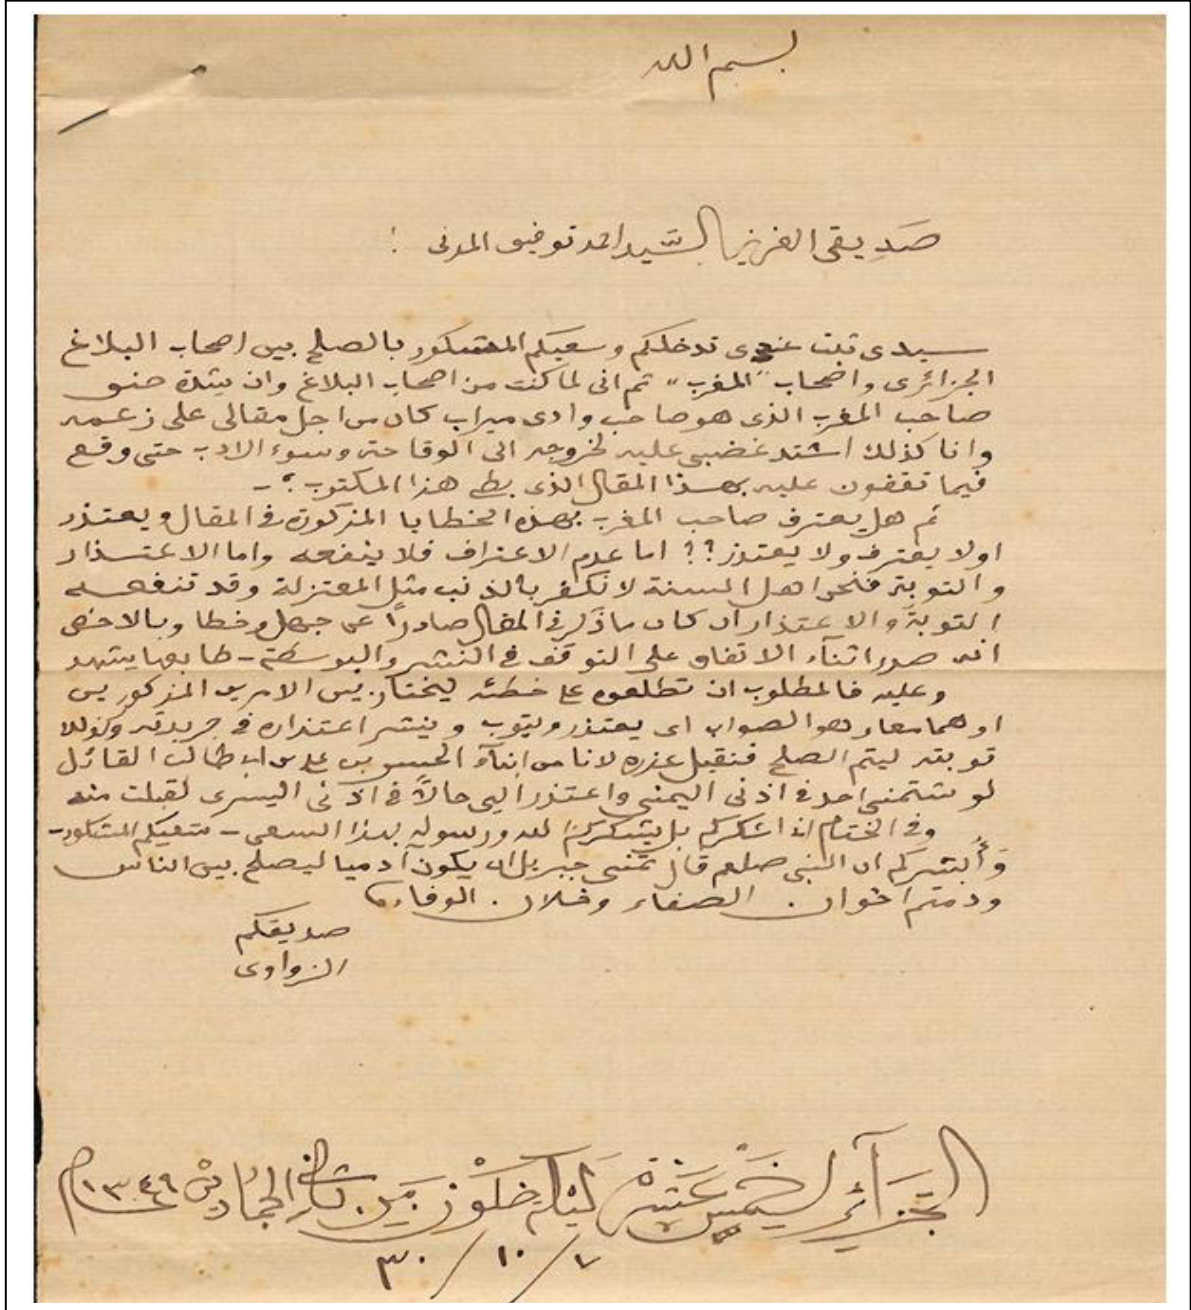 بسم الله
صديقي العزيز السيد احمد توفيق المدنى :
سيدى ثبت عندى تدخلكم وسعيكم المشكور بالصلح بين اصحاب البلاغ
الجزائرى واصحاب "المغرب" ثم انى لما كنت من اصحاب البلاغ وان شدة حنق
صاحب المغرب الذى هو صاحب وادى ميزاب كان من اجل مقالى على زعمه
وانا كذلك اشتد غضبى عليه لخروجه الى الوقاحة وسوء الادب حتى وقع
فيما تقفون عليه بهذا المقال الذى بطي هذا المكتوب ؟ -
ثم هل يعترف صاحب المغرب بهذه الخطايا المذكورة في المقال ويعتذر
اولا يعترف ولا يعتذر ؟؟ اما عدم الاعتراف فلا ينفعه واما الاعتذار
والتوبة فنحن اهل السنة لا نكفر بالذنب مثل المعتزلة وقد تنفعه
التوبة والاعتذار ان كان ما ذكر في المقال صادرًا عن جهل وخطا وبالاخص
انه صدر اثناء الاتفاق على التوقف في النشر والبوسطة - طابعها يشهد
وعليه فالمطلوب ان تطلعوه على خطئه ليختار بين الامرين المذكورين
او هما معا وهو الصواب اى يعتذر ويتوب وينشر اعتذاره في جريدته وكذلك
توبته ليتم الصلح فنقبل عذره لانا من ابناء الحسن بن على بن ابى طالب القائل
لو شتمنى احد في اذنى اليمنى واعتذر الي حالاً في اذنى اليسرى لقبلت منه
وفي الختام انا اشكركم بل يشكركم الله ورسوله لهذا السعى - سعيكم المشكور -
وأبشركم ان النبى صلعم قال تمنى جبريل ان يكون آدميا ليصلح بين الناس
ودمتم اخوان الصفاء وخلان الوفاء
صديقكم
الزواوى
الجزائر لخمس عشرة ليلة خلون من ثانى الجمادين ١٣٤٩م
٧ / ١٠ / ٣٠